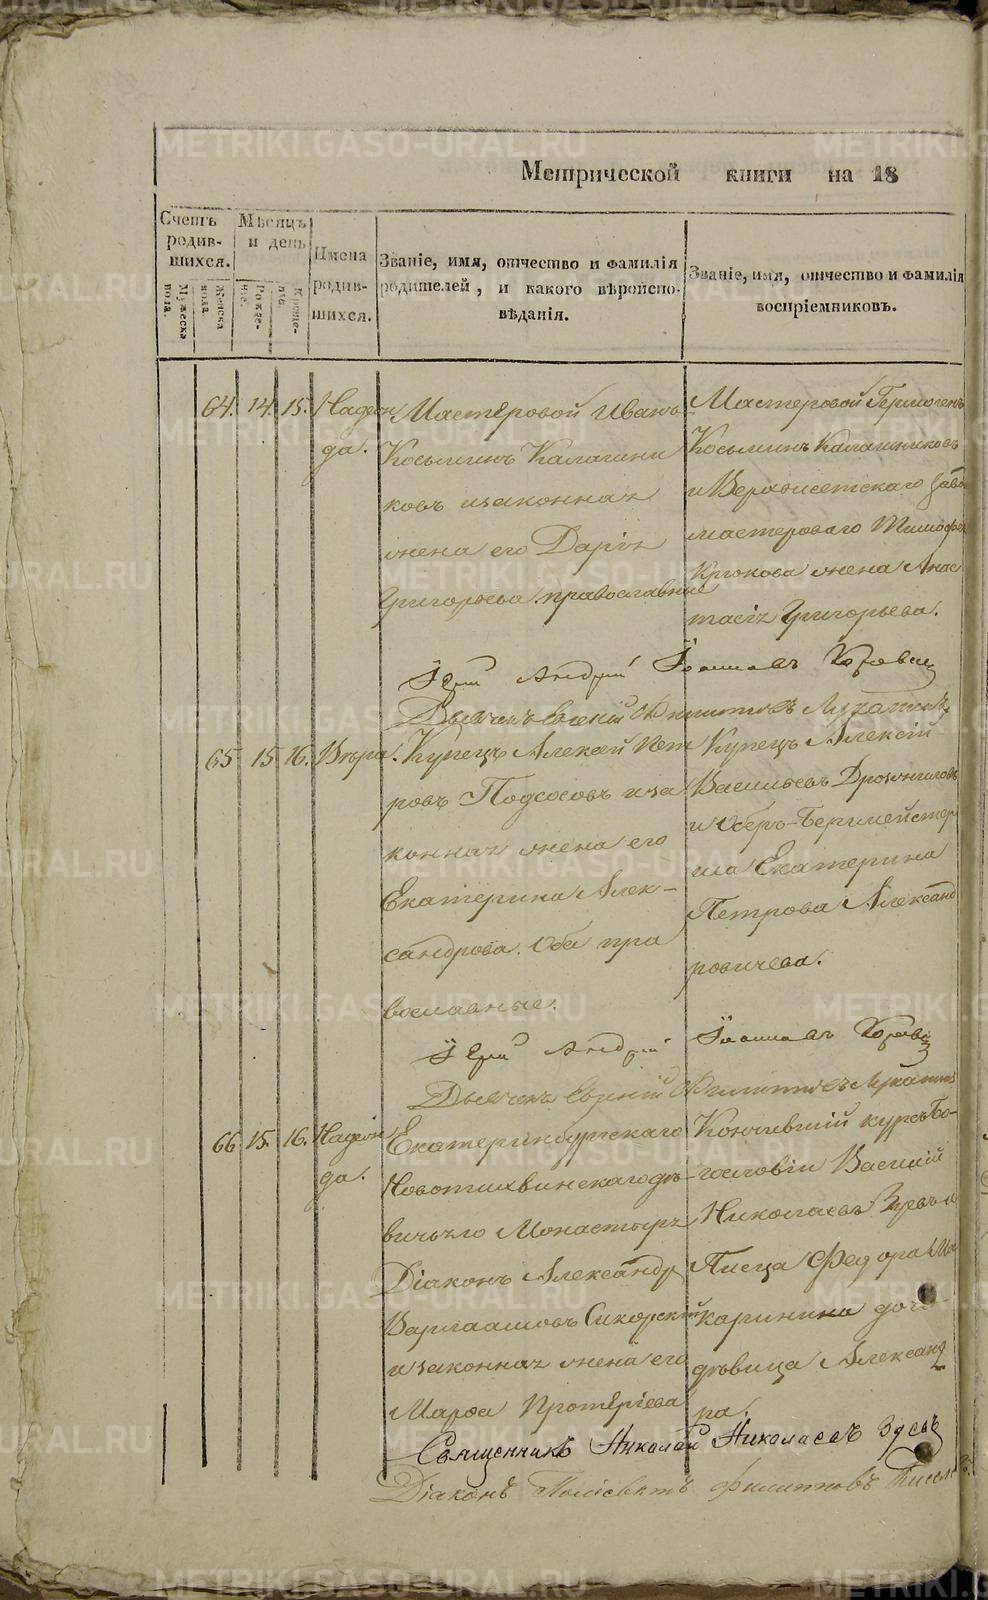 METRIKI.GASO-URAL.RU
Метрической книги на 18
Счетъ родив-шихся.
Мужеска пола.
Женска пола.
Мѣсяцъ и день
Рожде-нія.
Креще-нія
Имена родив-шихся.
Званіе, имя, отчество и фамилія
родителей, и какого вѣроиспо-
вѣданія.
Званіе, имя, отчество и фамилія
воспріемниковъ.
64. 14. 15. Надеж
да.
Мастеровой Иванъ
Косьминъ Калашни
ковъ и законная
жена его Дарія
Григорьева православные
Мастеровой Гермогенъ
Косьминъ Калашниковъ
и Верхисетскаго Заво
мастероваго Тимофея
Крюкова жена Анас
тасія Григорьева.
Іерей Андрей Іоанновъ
Дьячекъ Евгеній Филипповъ
65 15 16. Вѣра.
Купецъ Алексѣй Пет
ровъ Подсосовъ и за
конная жена его
Екатерина Алек-
сандрова. Оба пра
вославные.
Купецъ Алексій
Васильевъ Дрозжиловъ
и Оберъ-Бергмейстер
ша Екатерина
Петрова Александ
ровичева.
Іерей Андрей Іоанновъ
Дьячекъ Евгеній Филипповъ
66 15. 16. Надеж
да.
Екатеринбургскаго
Новотихвинскаго дѣ-
вичьяго Монастыря
Діаконъ Александръ
Варлаамовъ Сикорскій
и законная жена его
Марѳа Протеріева
Кончившій курсъ Бо-
гословіи Василій
Николаевъ Зуевъ и
Писца Федора Ма
каринина дочь
дѣвица Александ
ра.
Священникъ Николай Николаевъ Зуевъ
Діаконъ Поліевктъ Филипповъ